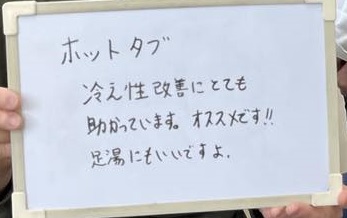 ホットタブ
冷え性改善にとても
助かっています。オススメです!!
足湯にもいいですよ.